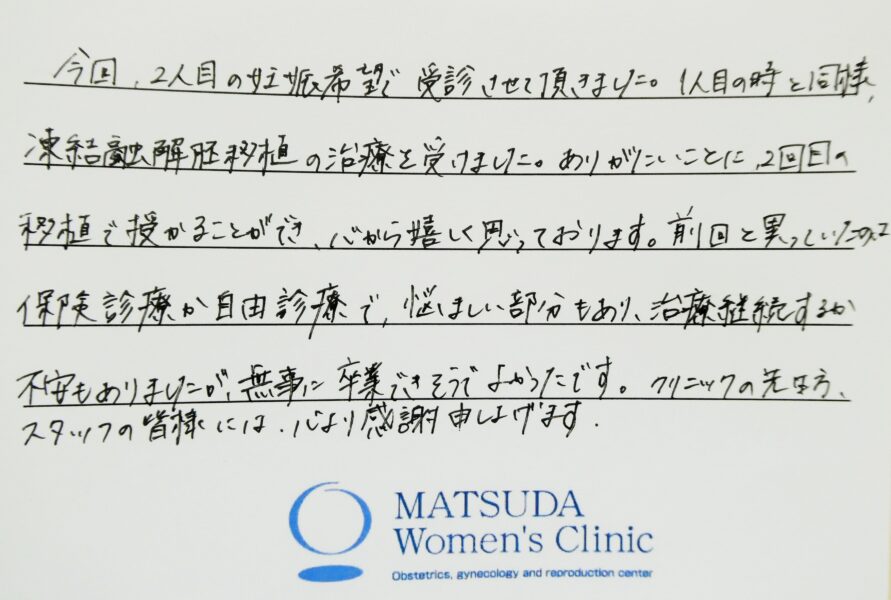 今回、2人目の妊娠希望で受診させて頂きました。1人目の時と同様、
凍結融解胚移植の治療を受けました。ありがたいことに、2回目の
移植で授かることができ、心から嬉しく思っております。前回と異っていたのは
保険診療か自由診療で、悩ましい部分もあり、治療継続するか
不安もありましたが、無事に卒業できそうでよかったです。クリニックの先生方、
スタッフの皆様には、心より感謝申し上げます.
MATSUDA
Women's Clinic
Obstetrics, gynecology and reproduction center